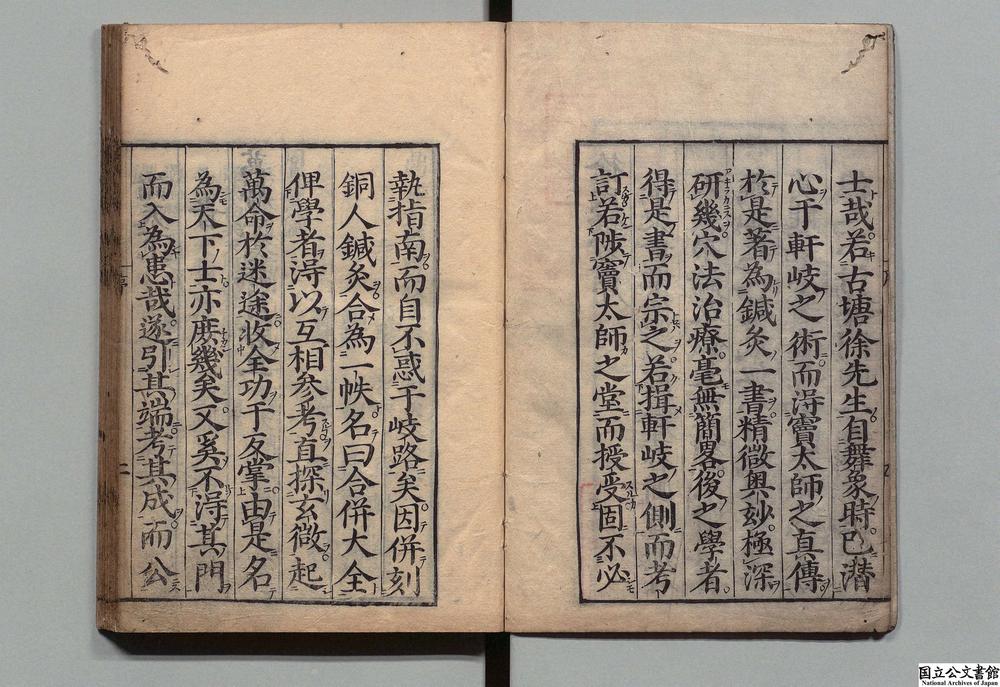 士哉若古塘徐先生自舞象時已潜
心于軒岐之術而得竇太師之真傳
於是著為鍼灸一書精微奥妙極深
研幾穴法治療毫無簡畧後之學者
得是書而宗之若揖軒岐之側而考
訂若陟竇太師之堂而授受固不必
執指南而自不惑于岐路矣因併刻
銅人鍼灸合為一帙名曰合併大全
俾學者得以互相參考直探玄微起
萬命於迷途收全功于反掌由是名
為天下士亦庶幾矣又奚不得其門
而入為患哉遂引其端考其成而公
序
二
国立公文書館
National Archives of Japan